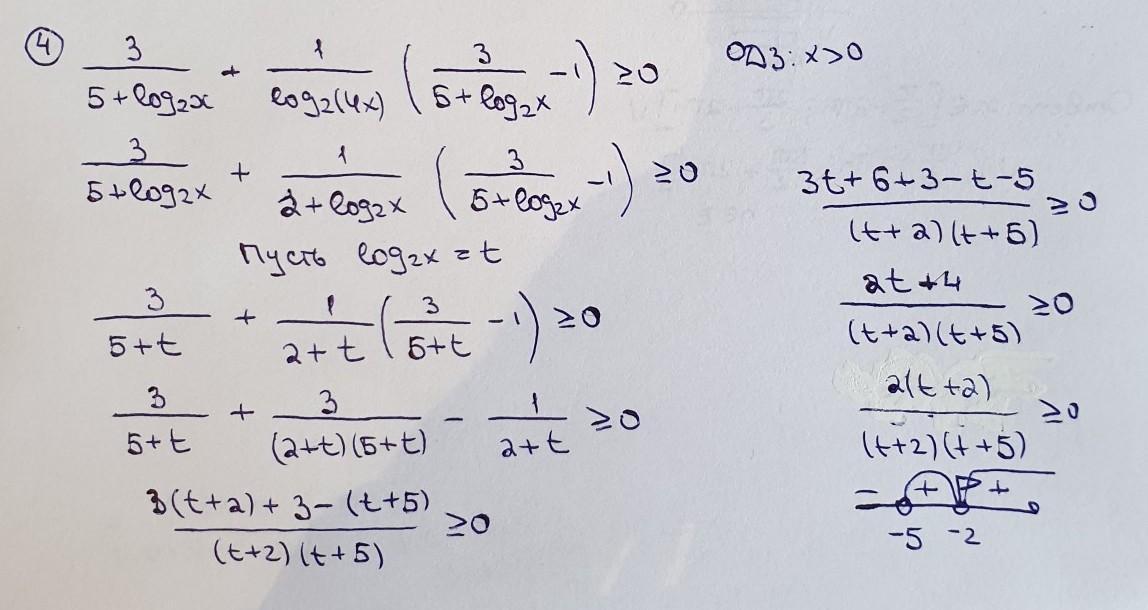 ④ 3/(5+log₂x) + 1/(log₂(4x)) (3/(5+log₂x) - 1) ≥0 ОДЗ: x>0
3/(5+log₂x) + 1/(2+log₂x) (3/(5+log₂x) - 1) ≥0
Пусть log₂x = t
3/(5+t) + 1/(2+t) (3/(5+t) - 1) ≥0
3/(5+t) + 3/((2+t)(5+t)) - 1/(2+t) ≥0
(3(t+2) + 3-(t+5))/((t+2)(t+5)) ≥0
(3t+6+3-t-5)/((t+2)(t+5)) ≥0
(2t+4)/((t+2)(t+5)) ≥0
(2(t+2))/((t+2)(t+5)) ≥0
- + +
-5 -2